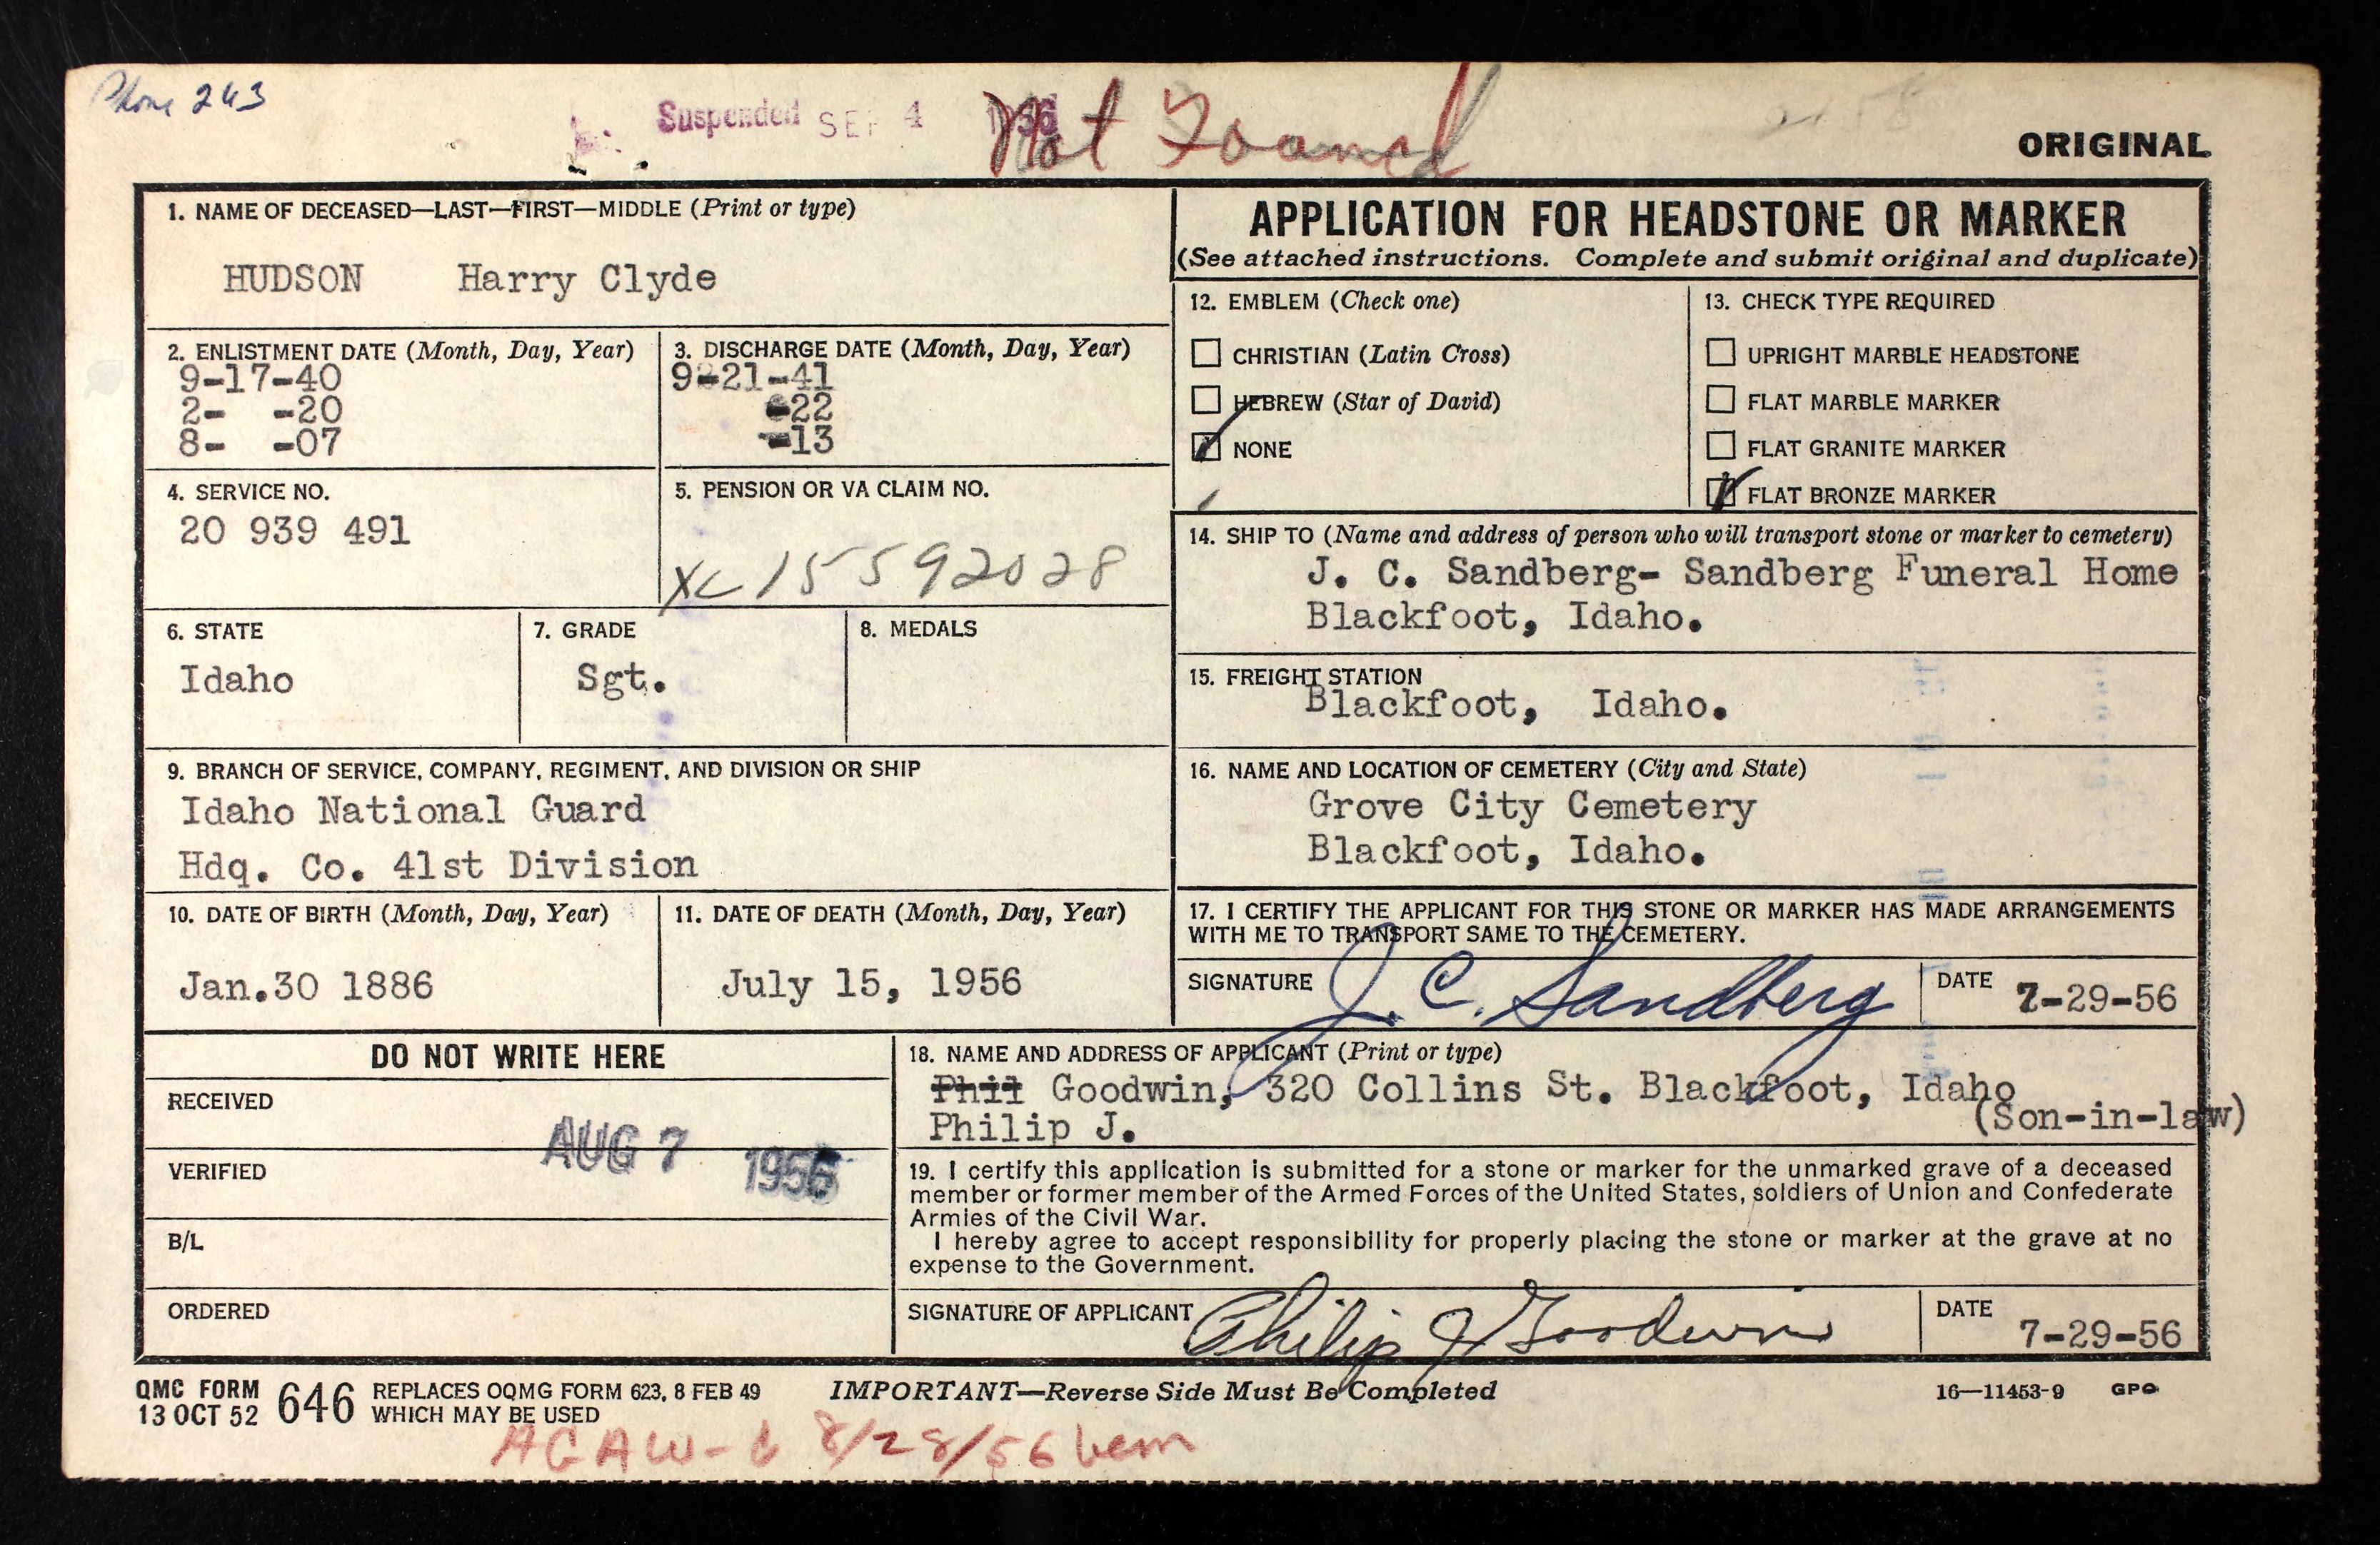 Phone 243
Suspended SEP 4 1956
Not Found
ORIGINAL
1. NAME OF DECEASED—LAST—FIRST—MIDDLE (Print or type)
HUDSON Harry Clyde
2. ENLISTMENT DATE (Month, Day, Year)
9-17-40
2- -20
8- -07
3. DISCHARGE DATE (Month, Day, Year)
9-21-41
-22
-13
4. SERVICE NO.
20 939 491
5. PENSION OR VA CLAIM NO.
XC 15592028
6. STATE
Idaho
7. GRADE
Sgt.
8. MEDALS
9. BRANCH OF SERVICE, COMPANY, REGIMENT, AND DIVISION OR SHIP
Idaho National Guard
Hdq. Co. 41st Division
10. DATE OF BIRTH (Month, Day, Year)
Jan.30 1886
11. DATE OF DEATH (Month, Day, Year)
July 15, 1956
APPLICATION FOR HEADSTONE OR MARKER
(See attached instructions. Complete and submit original and duplicate)
12. EMBLEM (Check one)
CHRISTIAN (Latin Cross)
HEBREW (Star of David)
NONE
13. CHECK TYPE REQUIRED
UPRIGHT MARBLE HEADSTONE
FLAT MARBLE MARKER
FLAT GRANITE MARKER
FLAT BRONZE MARKER
14. SHIP TO (Name and address of person who will transport stone or marker to cemetery)
J. C. Sandberg- Sandberg Funeral Home
Blackfoot, Idaho.
15. FREIGHT STATION
Blackfoot, Idaho.
16. NAME AND LOCATION OF CEMETERY (City and State)
Grove City Cemetery
Blackfoot, Idaho.
17. I CERTIFY THE APPLICANT FOR THIS STONE OR MARKER HAS MADE ARRANGEMENTS
WITH ME TO TRANSPORT SAME TO THE CEMETERY.
SIGNATURE J. C. Sandberg
DATE 7-29-56
DO NOT WRITE HERE
RECEIVED
AUG 7 1956
VERIFIED
B/L
ORDERED
18. NAME AND ADDRESS OF APPLICANT (Print or type)
Phil Goodwin, 320 Collins St. Blackfoot, Idaho
Philip J. (Son-in-law)
19. I certify this application is submitted for a stone or marker for the unmarked grave of a deceased
member or former member of the Armed Forces of the United States, soldiers of Union and Confederate
Armies of the Civil War.
I hereby agree to accept responsibility for properly placing the stone or marker at the grave at no
expense to the Government.
SIGNATURE OF APPLICANT Philip J Goodwin
DATE 7-29-56
QMC FORM
13 OCT 52
646
REPLACES OQMG FORM 623, 8 FEB 49
WHICH MAY BE USED
IMPORTANT—Reverse Side Must Be Completed
16—11453-9 GPO
8/28/56